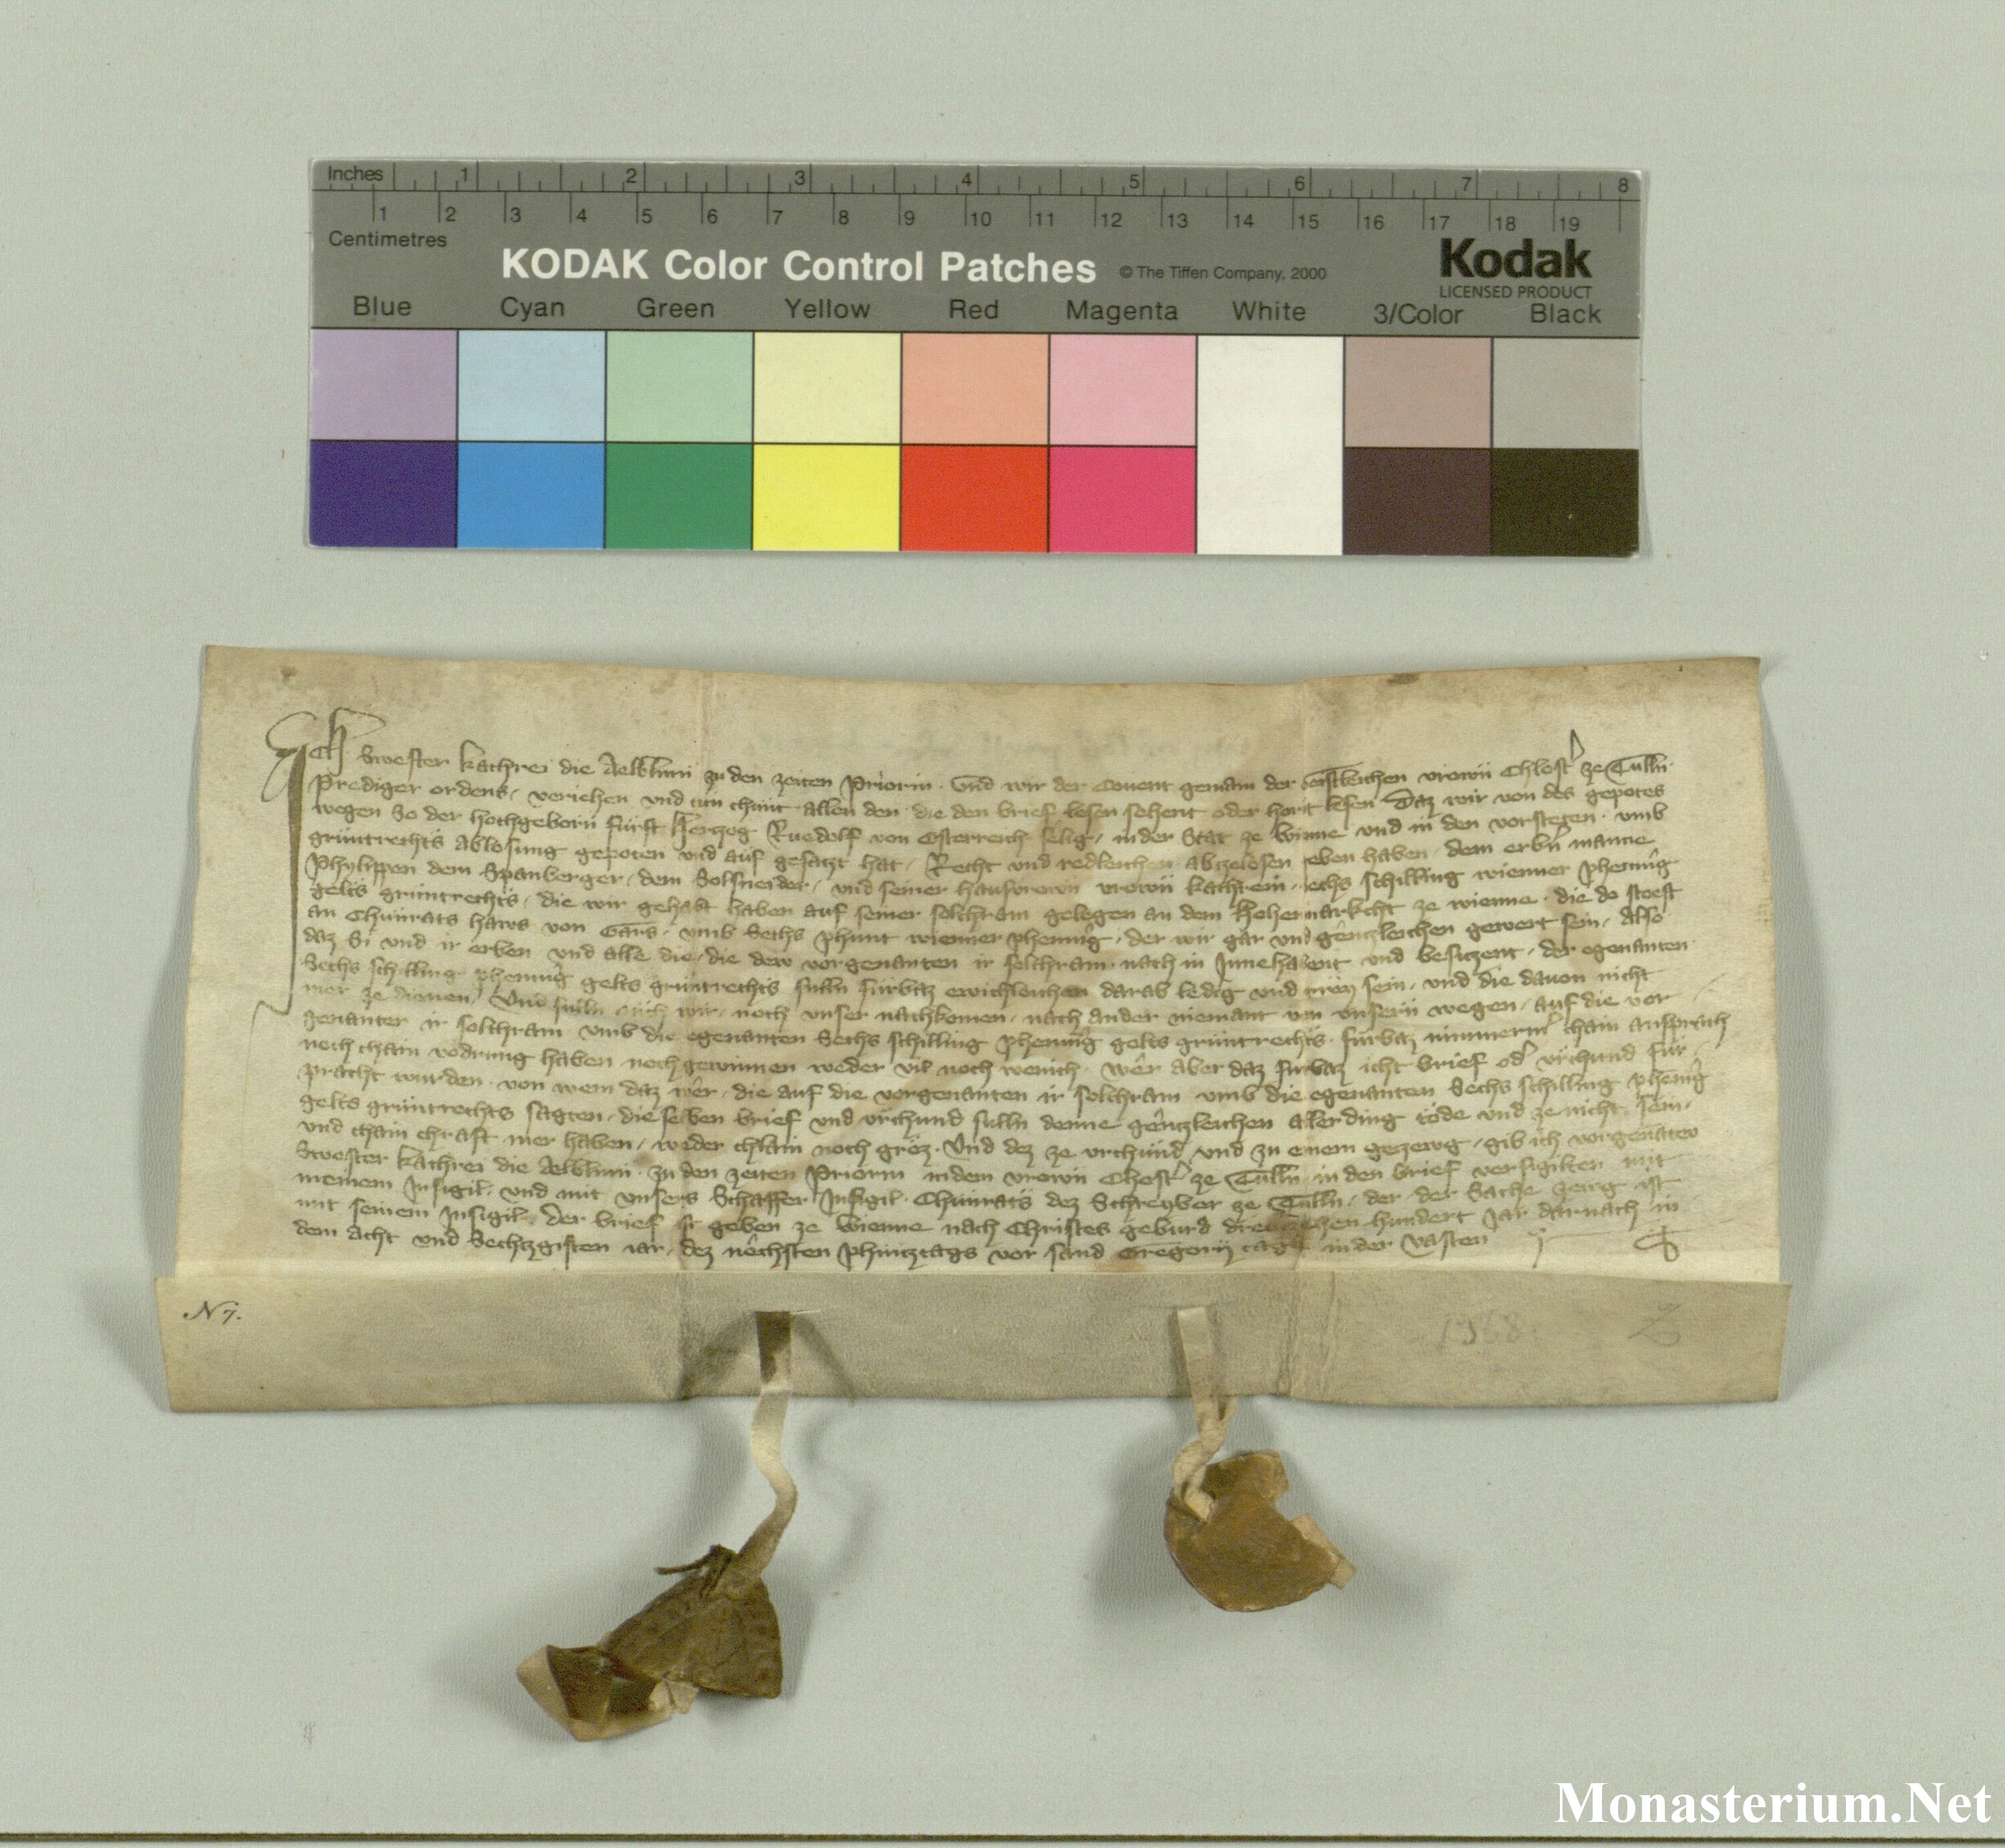 Inches 1 2 3 4 5 6 7 8
1 2 3 4 5 6 7 8 9 10 11 12 13 14 15 16 17 18 19
Centimetres
KODAK Color Control Patches © The Tiffen Company, 2000 Kodak
LICENSED PRODUCT
Blue Cyan Green Yellow Red Magenta White 3/Color Black
Ich Swester kathrei die Aelblini zu den zeiten Priorin. Und wir der Couent gemain der vrown Chlost' ze Tulln
Prediger ordens, veriehen und tůn chunt allen den die den brief lesen sehent oder hornt lesen Daz wir von des gepotes
wegen So der hochgeborn fürst Herzog Ruedolf von Osterreich selig, in der Stat ze wienne und in den vorsteten umb
gruntrechts ablosung gepoten und auf gesatzt hat, Recht und redleichen abzelosen geben haben dem erbn manne
Phylippen dem Spanberger, dem Solsneider, und seiner hausvrown vrown kathrein, sechs schilling wienner phennig
gelts gruntrechts, die wir gehabt haben auf seiner solchram gelegen an dem Hohenmarkcht ze wienne, die do stoest
an Chunrats haws von Gars, umb Sechs phunt wienner phennig, der wir gar und gentzleichen gewert sein, Also
daz Si und ir erben und alle die, die dew vorgenanten ir solchram nach in Innehabent und besiczent, der egenanten
Sechs schilling phennig gelts gruntrechts sulln fürbaz ewichleichen darab ledig und vrey sein, und die dauon nicht
mer ze dienen, Und sulln auch wir, noch unser nachkomen, nach ander niemant von unsern wegen, auf die vor
genanter ir solchram umb die egenanten Sechs schilling phennig gelts gruntrechts fürbaz nimmerm' chain anspruch
noch chain vodrung haben noch gewinnen weder vil noch wenich. wer aber daz fürbaz icht brief od' urchund für
pracht wurden von wem daz wer, die auf die vorgenanten ir solchram umb die egenanten Sechs schilling phenig
gelts gruntrechts sagten, dieselben brief und urchund sulln denne gentzleichen allerding tode und ze nicht sein,
und chain chraft mer haben, weder chlain noch groz. Und dez ze urchund und zu einem gezewg, gib ich vorgenatev
Swester kathrei die Aelblini zu den zeiten Priorin in dem vrown Chost' ze Tulln in den brief versigilten mit
meinem Insigil, und mit unsers Schaffer Insigil Chunrats dez Schreyber ze Tulln, der der Sache zewg ist
mit seinem Insigil, der brief ist geben ze wienne nach Christes geburd dreutzehen hundert Jar darnach in
dem acht und Sechtzgisten iar, dez nechsten phintztags vor sand Gregorij tag in der vasten
N 7.
1368
Monasterium.Net